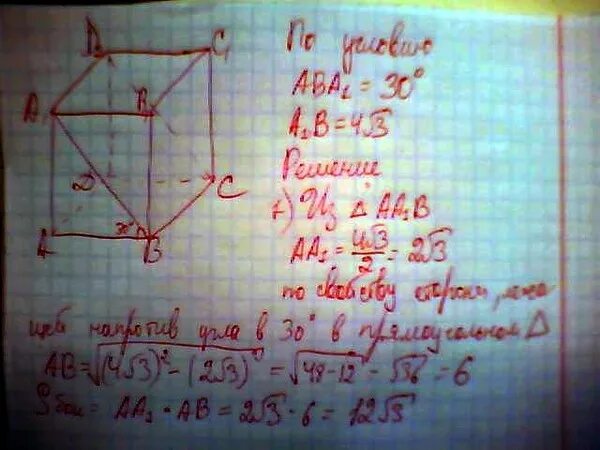 D C₁
A B
D C
A 30° B
По условию
ABA₁ = 30°
A₁B = 4√3
Решение
1) Из △ AA₁B
AA₁ = 4√3/2 = 2√3
по свойству стороны, лежа
щей напротив угла в 30° в прямоугольном △
AB = √(4√3)² - (2√3)² = √48 - 12 = √36 = 6
Sбок = AA₁ · AB = 2√3 · 6 = 12√3